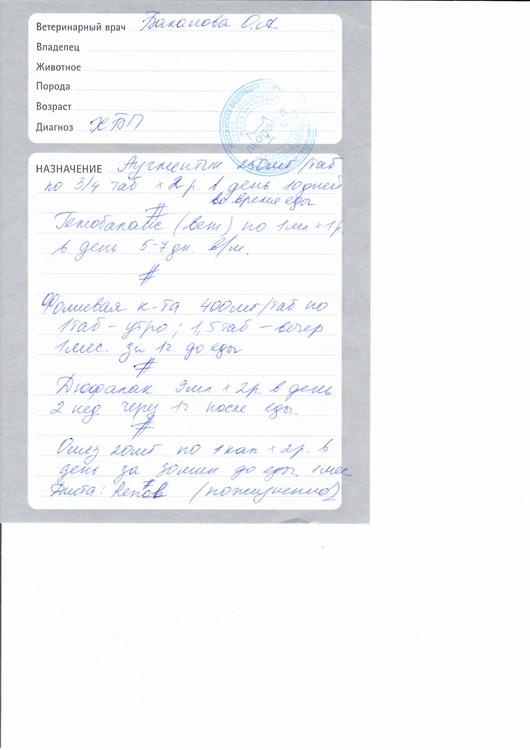 Ветеринарный врач Баканова О.А
Владелец
Животное
Порода
Возраст
Диагноз ХБП
НАЗНАЧЕНИЕ Аугментин 250мг/таб
по 3/4 таб х 2 р. в день 10 дней
во время еды
#
Гемобаланс (вет) по 1мл х 1р
в день 5-7 дн. в/м.
#
Фолиевая к-та 400мг/таб по
1таб - утро; 1,5таб - вечер
1мес. за 1ч до еды
#
Дюфалак 9мл х 2р. в день
2 нед. через 1ч после еды.
#
Омез 20мг по 1 кап х 2р. в
день за 30мин до еды. 1 мес
#
Диета: Renal (пожизненно)